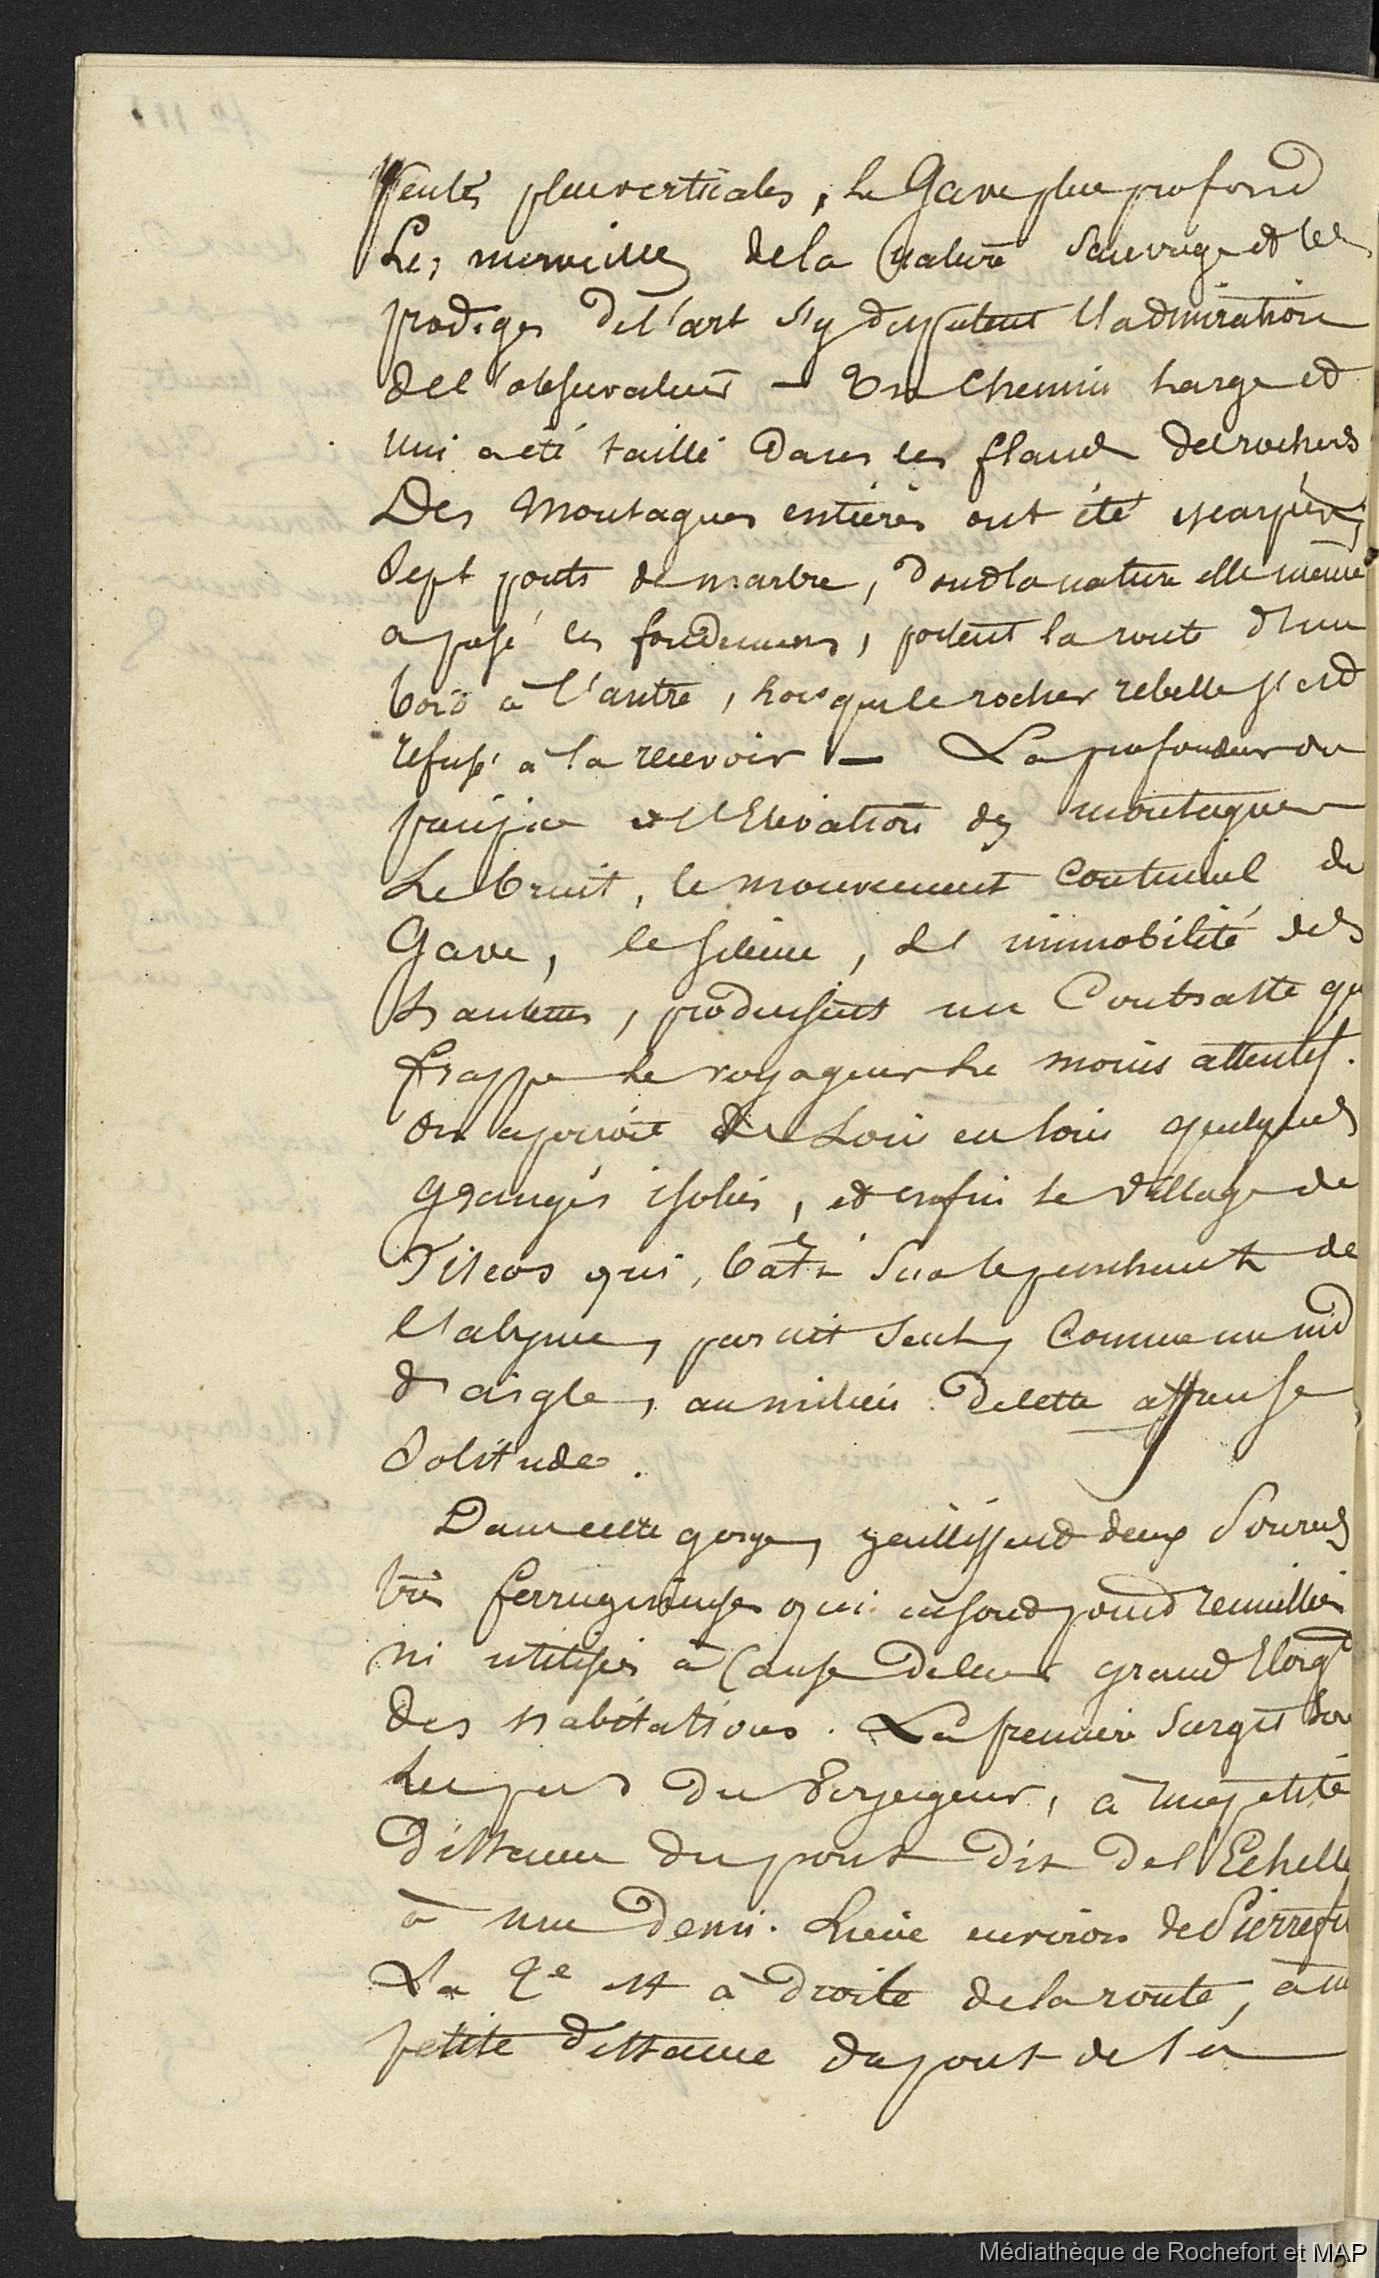 pentes plus verticales, le Gave plus profond
Les merveilles de la nature Sauvage et les
prodiges de l'art s'y disputent l'admiration
de l'observateur — Un Chemin large et
uni a été taillé dans les flancs des rochers
Des Montagnes entières ont été escarpées;
Sept ponts de marbre, dont la nature elle même
a posé les fondemens, portent la route d'un
bord à l'autre, lorsque le rocher rebelle s'est
refusé à la recevoir — La profondeur du
précipice et l'Elévation des montagnes
Le bruit, le mouvement Continuel du
Gave, le Silence, et l'immobilité des
hauteurs, produisent un Contraste qui
frappe le voyageur le moins attentif.
On apercoit de Loin en loin quelques
granges isolées, et enfin le village de
Viscos qui, bâti Sur le penchant de
l'abyme, parait Seul, Comme un nid
d'aigle, au milieu de cette affreuse
Solitude.
Dans cette gorge, jaillissent deux Sources
très ferrugineuses qui ne sont point recueillies
ni utilisées à Cause de leur grand Eloigt
des habitations. La premiere Surgit sous
les pas du Voyageur, à une petite
distance du pont dit de l'Echelle
à une demi-Lieue environ de Pierrefi
La 2e est à droite de la route, à un
petite distance du pont de la
Médiathèque de Rochefort et MAP